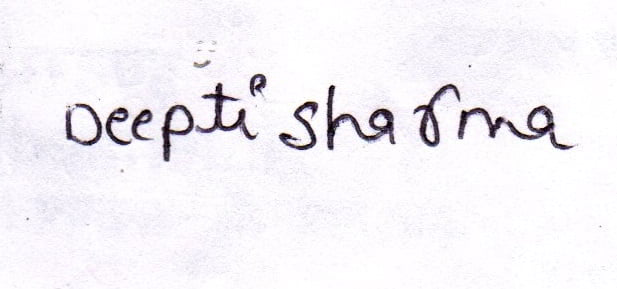 Deepti Sharma